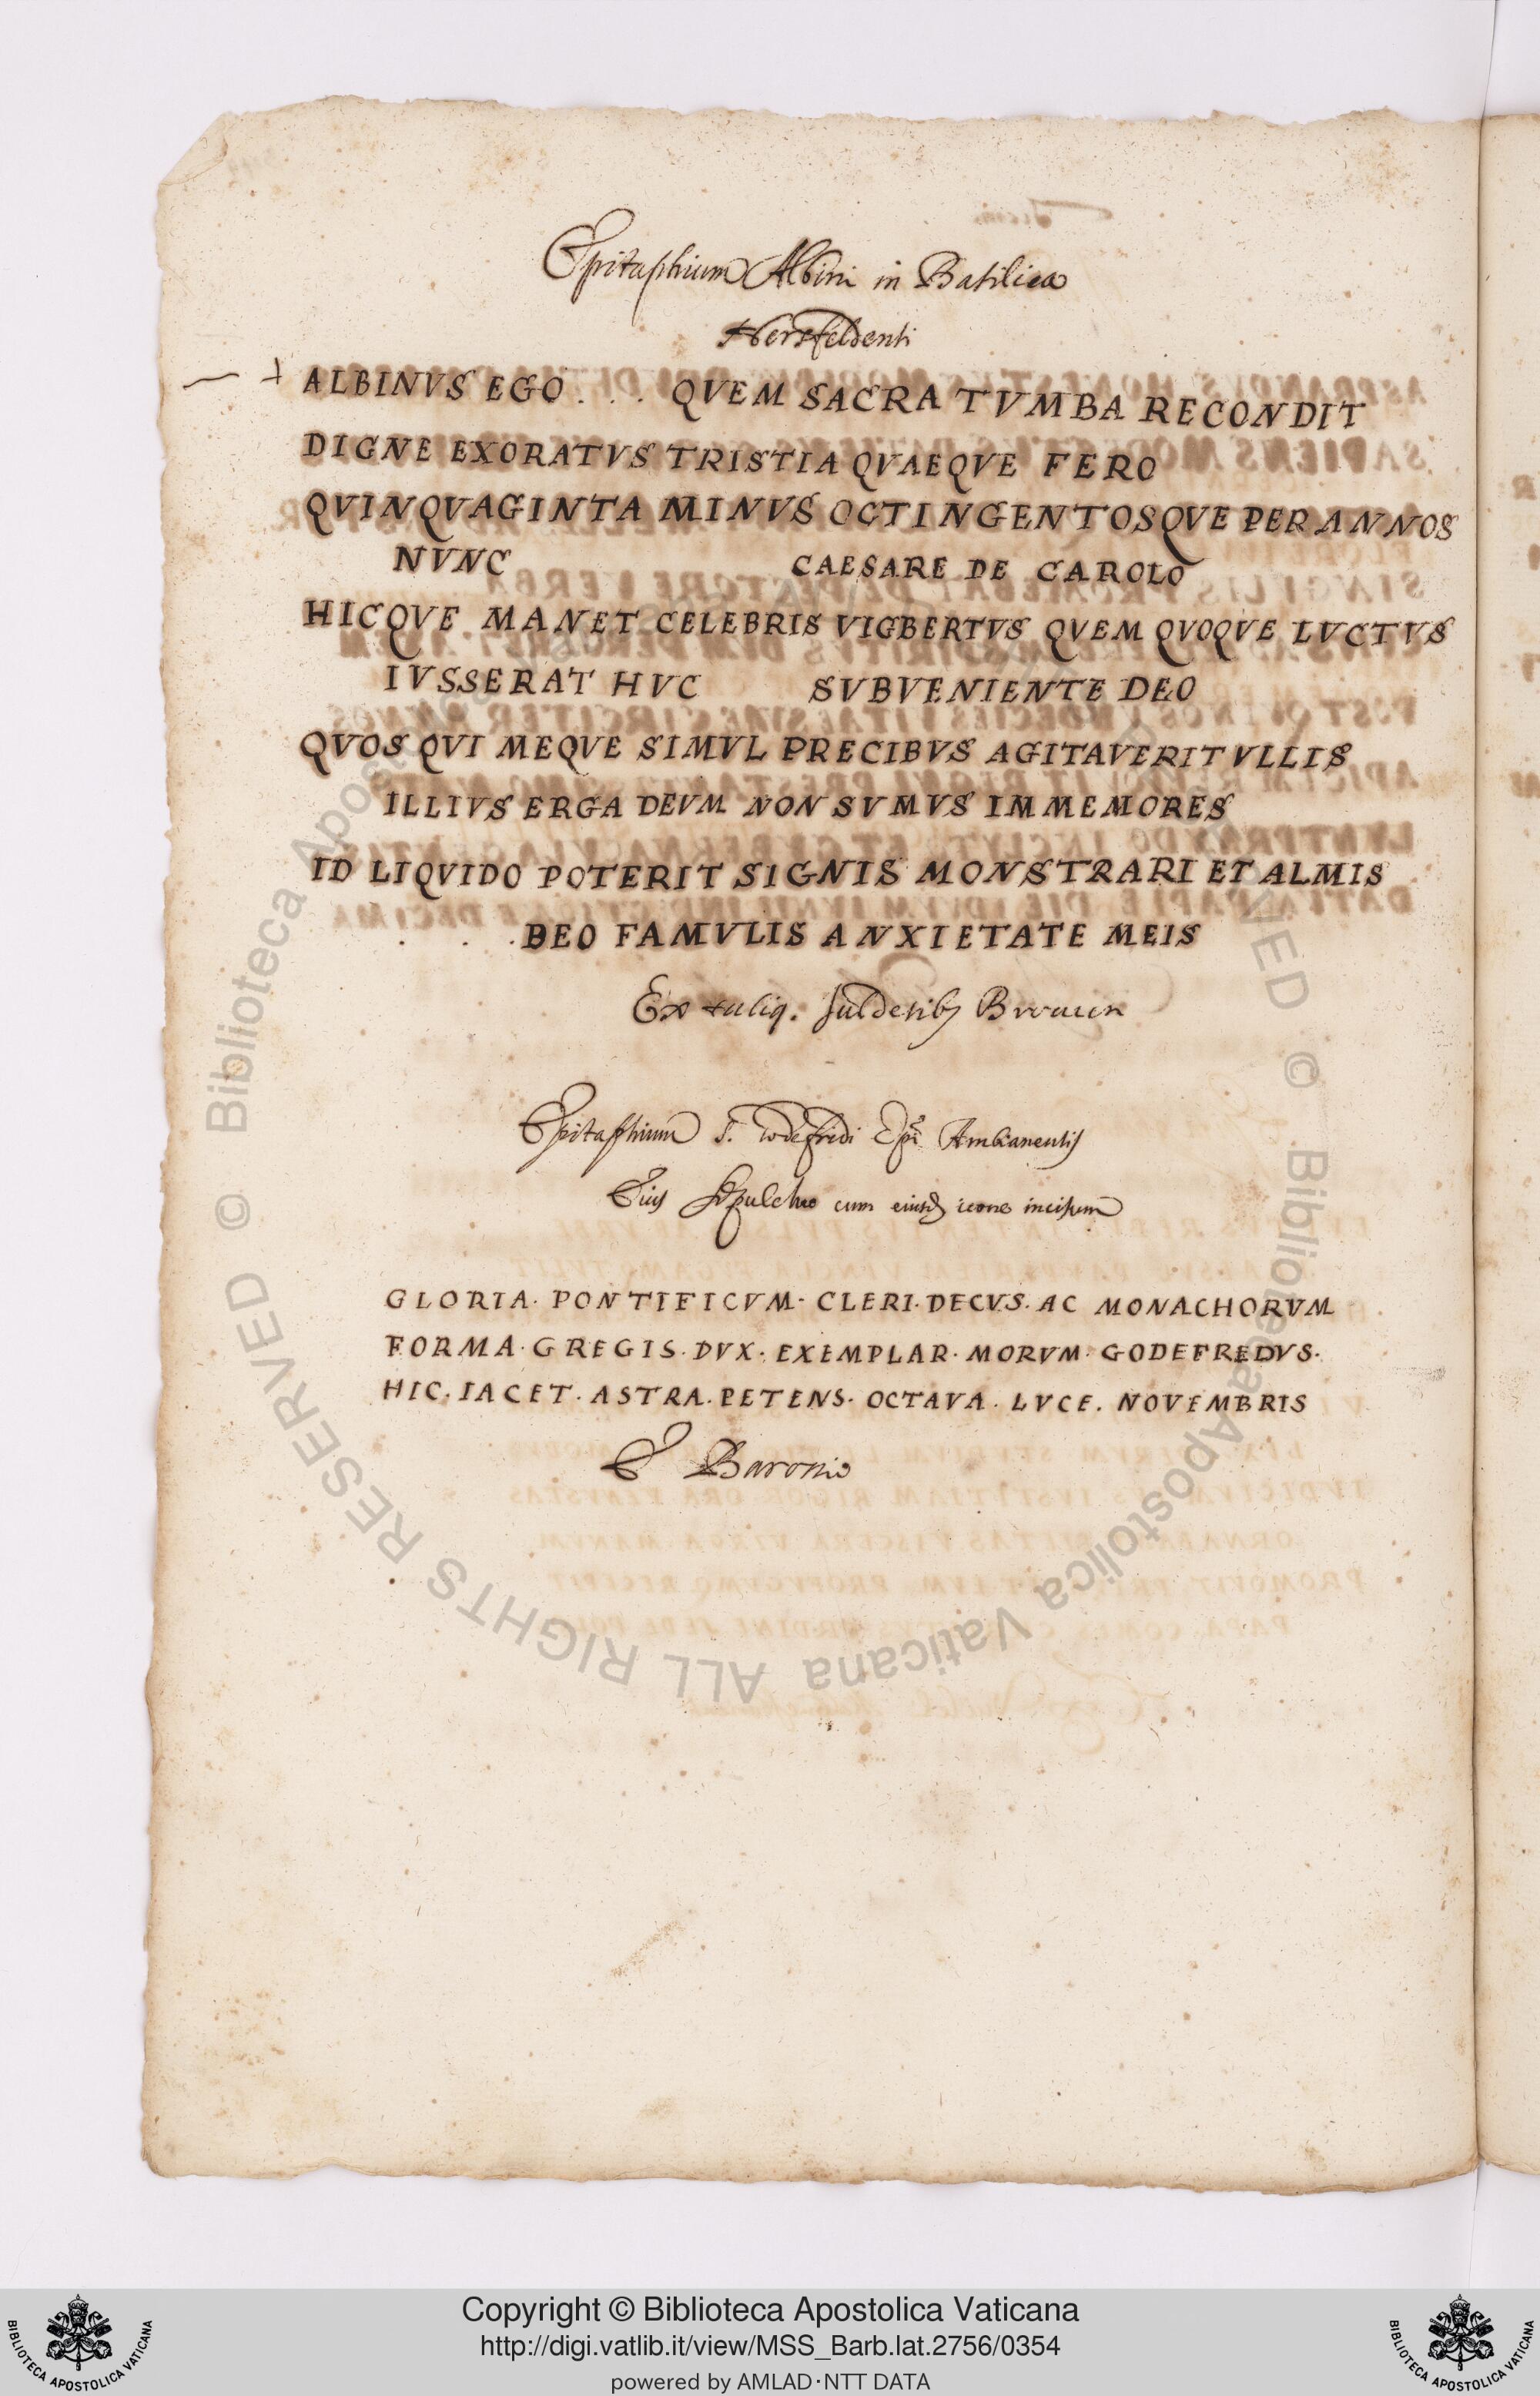 Epitaphium Albini in Basilica
Hersfeldensi
ALBINVS EGO . . . QVEM SACRA TVMBA RECONDIT
DIGNE EXORATVS TRISTIA QVAEQVE FERO
QVINQVAGINTA MINVS OCTINGENTOSQVE PER ANNOS
NVNC CAESARE DE CAROLO
HICQVE MANET CELEBRIS VIGBERTVS QVEM QVOQVE LVCTVS
IVSSERAT HVC SVBVENIENTE DEO
QVOS QVI MEQVE SIMVL PRECIBVS AGITAVERIT VLLIS
ILLIVS ERGA DEVM NON SVMVS IMMEMORES
ID LIQVIDO POTERIT SIGNIS MONSTRARI ET ALMIS
. . . DEO FAMVLIS ANXIETATE MEIS
Ex fuldesibq Brouuer
Epitaphium S. Godefridi Epi Ambianensis
Eius sepulchro cum eiusd icone incisum
GLORIA. PONTIFICVM. CLERI. DECVS. AC MONACHORVM
FORMA. GREGIS. DVX. EXEMPLAR. MORVM. GODEFREDVS.
HIC. IACET. ASTRA. PETENS. OCTAVA. LVCE. NOVEMBRIS
E Baronio
© Biblioteca Apostolica Vaticana ALL RIGHTS RESERVED
Copyright © Biblioteca Apostolica Vaticana
http://digi.vatlib.it/view/MSS_Barb.lat.2756/0354
powered by AMLAD·NTT DATA
BIBLIOTECA APOSTOLICA VATICANA
BIBLIOTECA APOSTOLICA VATICANA